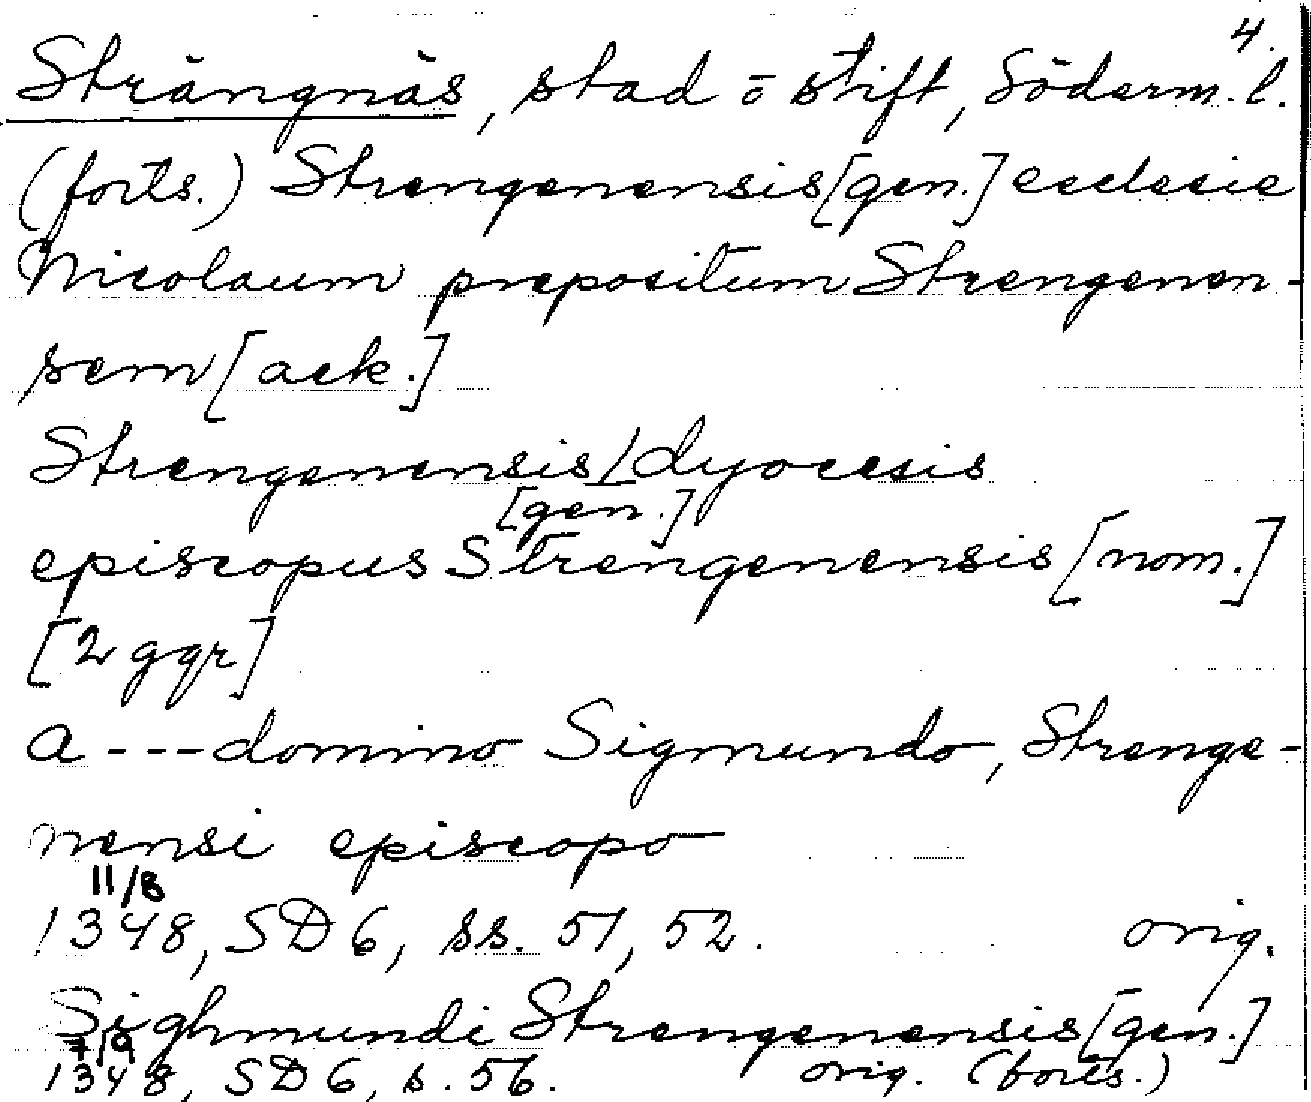 4.
Strängnäs, stad o stift, Söderm. l.
(forts.) Strengenensis [gen.] ecclesie
Nicolaum prepositum Strengenen-
sem [ack.]
Strengenensis / dyocesis
[gen.]
episcopus Strengenensis [nom.]
[2 ggr]
a --- domino Sigmundo, Strenge-
nensi episcopo
11/8
1348, SD 6, ss. 51, 52. orig.
Sighmundi Strengenensis [gen.]
7/9
1348, SD 6, s. 56. orig. (forts.)